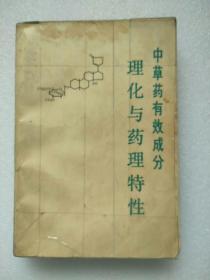 中草药有效成分
理化与药理特性